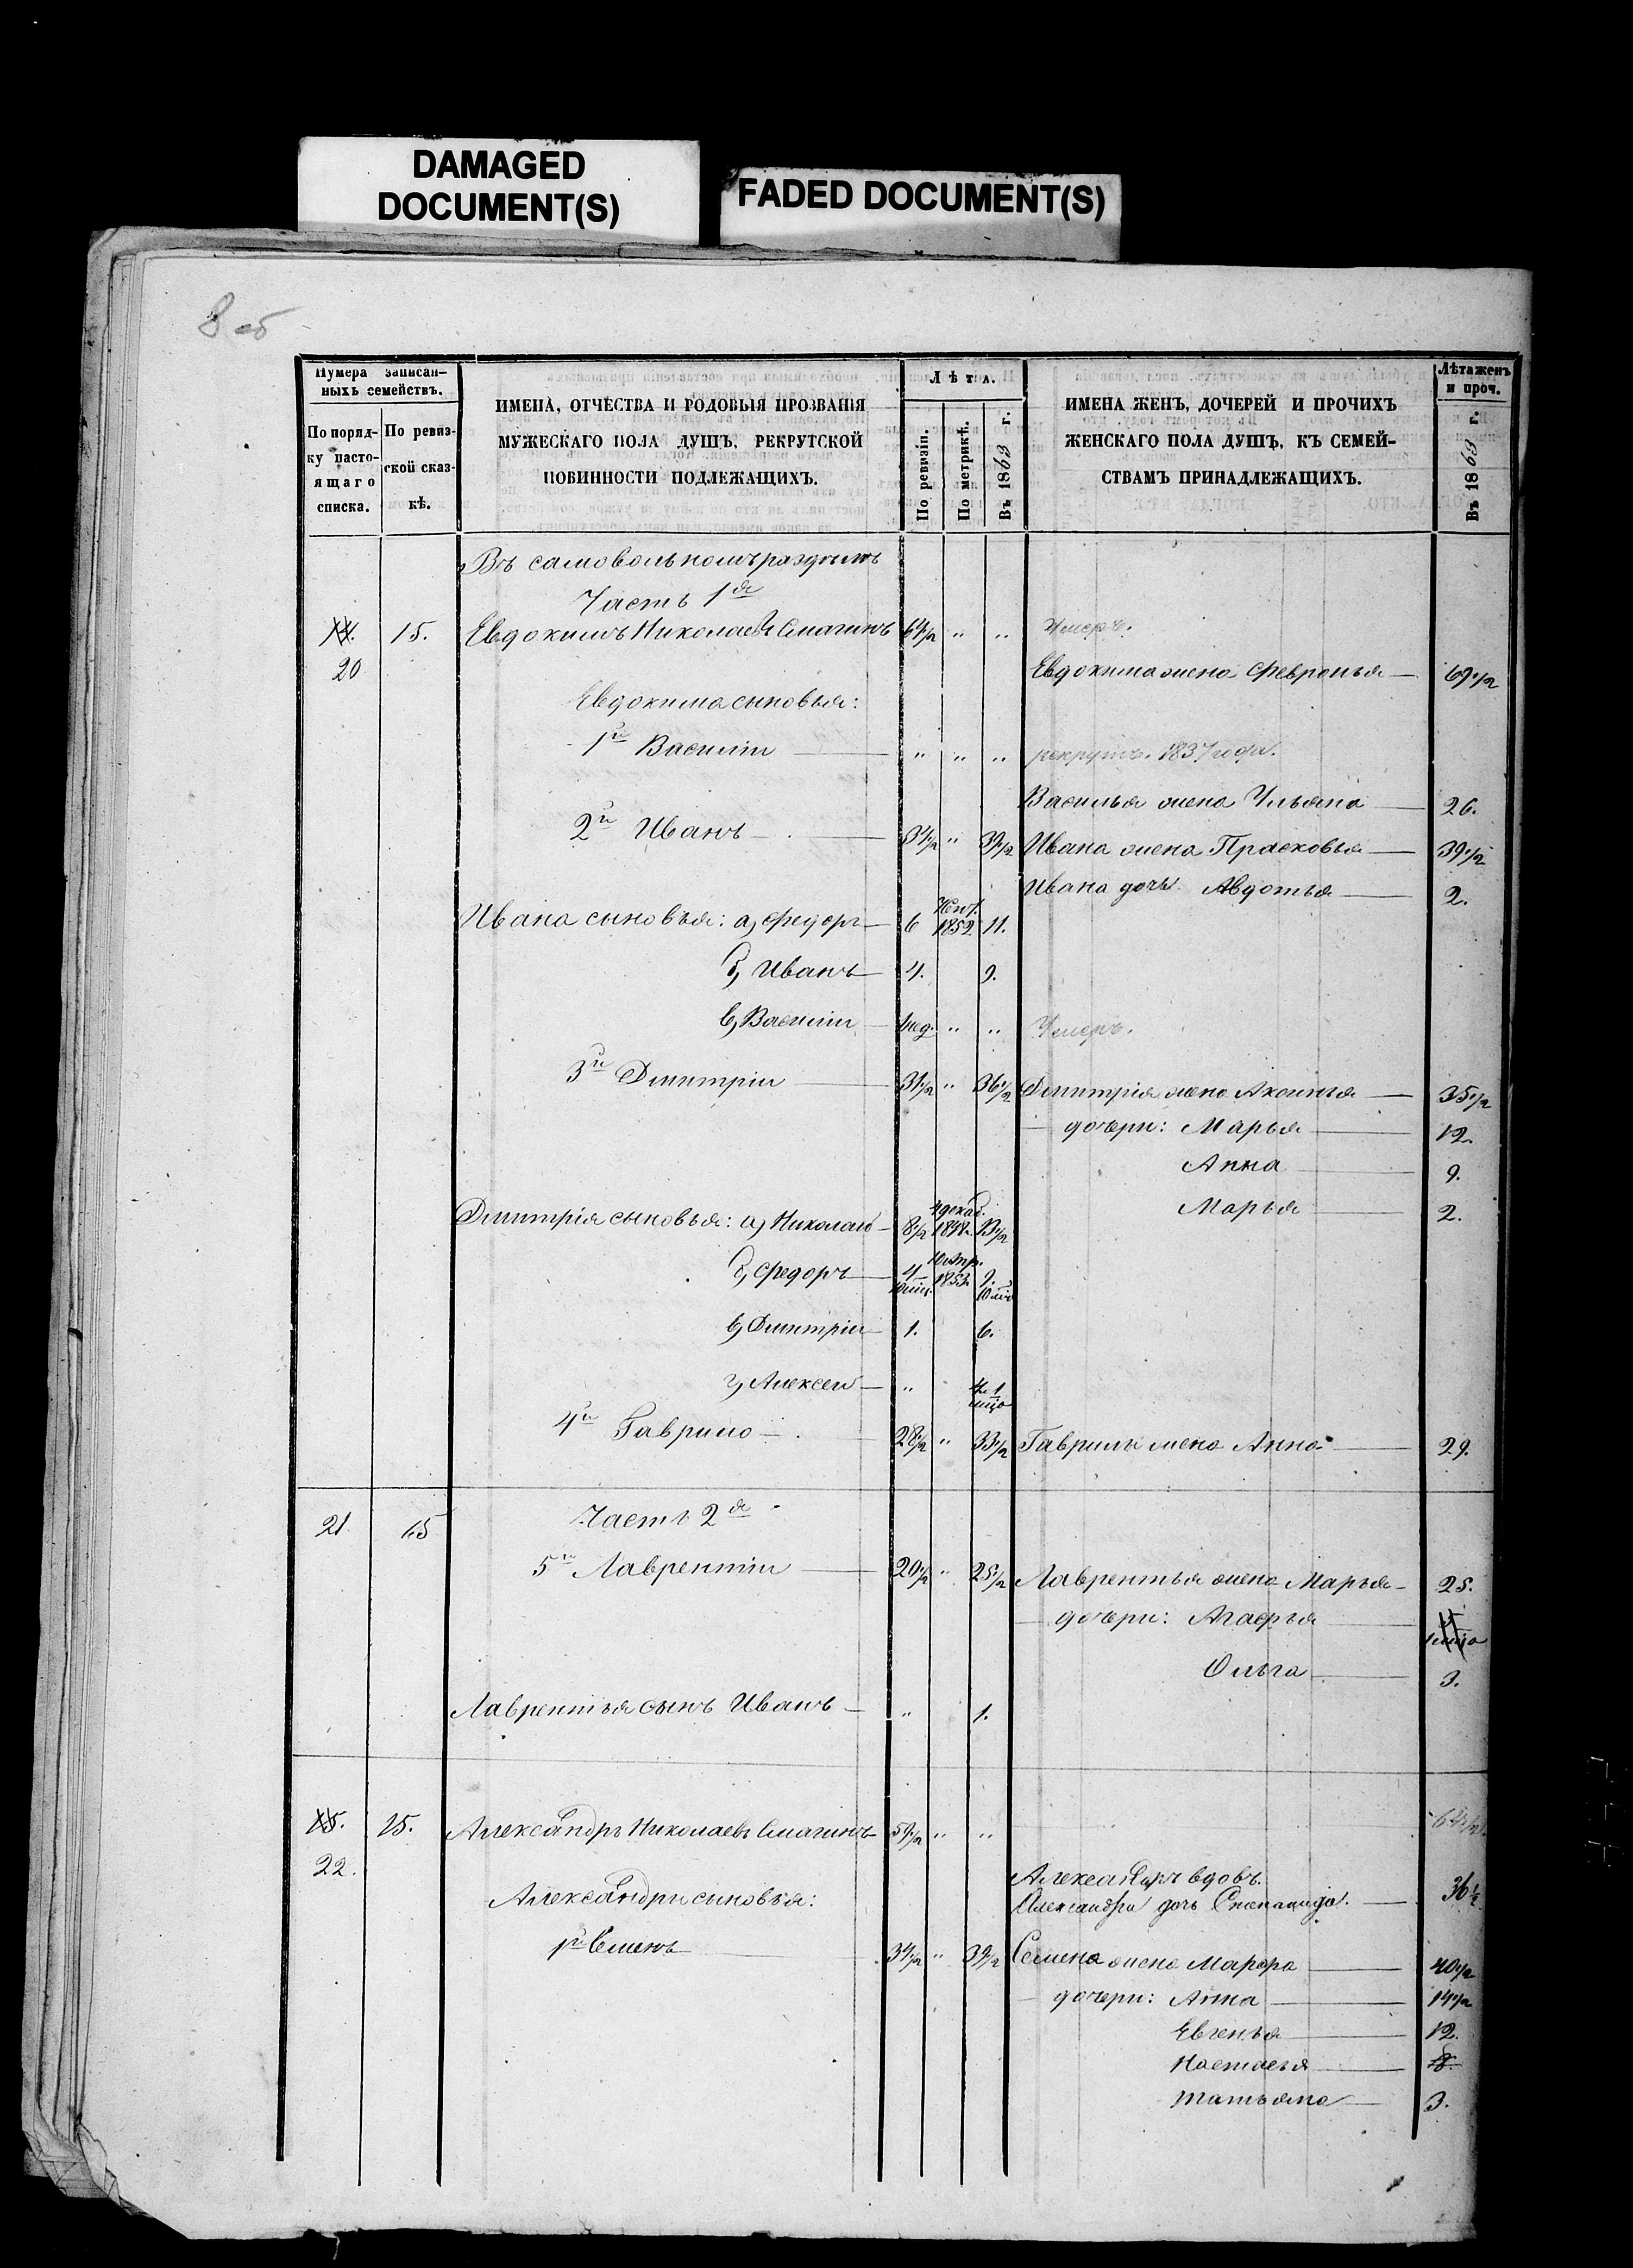 DAMAGED
DOCUMENT(S)
FADED DOCUMENT(S)
8 об
Нумера записан-
ныхъ семействъ.
По поряд-
ку насто-
ящаго
списка.
По ревиз-
ской сказ-
кѣ.
ИМЕНА, ОТЧЕСТВА И РОДОВЫЯ ПРОЗВАНІЯ
МУЖЕСКАГО ПОЛА ДУШЪ, РЕКРУТСКОЙ
ПОВИННОСТИ ПОДЛЕЖАЩИХЪ.
Лѣта.
По ревизіи.
По метрикѣ.
Въ 1863 г.
ИМЕНА ЖЕНЪ, ДОЧЕРЕЙ И ПРОЧИХЪ
ЖЕНСКАГО ПОЛА ДУШЪ, КЪ СЕМЕЙ-
СТВАМЪ ПРИНАДЛЕЖАЩИХЪ.
Лѣта женъ
и проч.
Въ 1863 г.
Въ самовольномъ раздѣлѣ
Часть 1я
14. 15. Евдокимъ Николаевъ Смагинъ 64 1/2 " " Умеръ.
20 Евдокима жена Февронья — 69 1/2
Евдокима сыновья:
1й Василій — " " " рекрутъ. 1837 года.
Василья жена Ульяна — 26.
2й Иванъ — 34 1/2 " 39 1/2 Ивана жена Прасковья — 39 1/2
Ивана дочь Авдотья — 2.
Ивана сыновья: а, Федоръ — 6 1852 11.
б, Иванъ — 4. 9.
в, Василій — 4 нед. " " Умеръ.
3й Дмитрій — 31 1/2 " 36 1/2 Дмитрія жена Аксинья — 35 1/2
дочери: Марья — 12.
Анна — 9.
Марья — 2.
Дмитрія сыновья: а, Николай — 8 1/2 4 декаб. 1848. 13 1/2
б, Федоръ — 4 10 мц. 1853 9. 10 мц
в, Дмитрій — 1. 6.
г, Алексей — "
4й Гаврило — 28 1/2 " 33 1/2 Гаврилы жена Анна — 29.
21. 15 Часть 2я
5й Лаврентій — 20 1/2 " 25 1/2 Лаврентья жена Марья — 25.
дочери: Агафья —
Ольга — 3.
Лаврентья сынъ Иванъ — " 1.
15. 15. Александръ Николаевъ Смагинъ 59 1/2 " "
22. Александръ вдовъ.
Александры сыновья: Александры дочь — 36 1/2
1й Семенъ — 34 1/2 " 39 1/2 Семена жена Марфа — 40 1/2
дочери: Анна — 14 1/2
Евгенья — 12.
Настасья — 8.
Татьяна — 3.